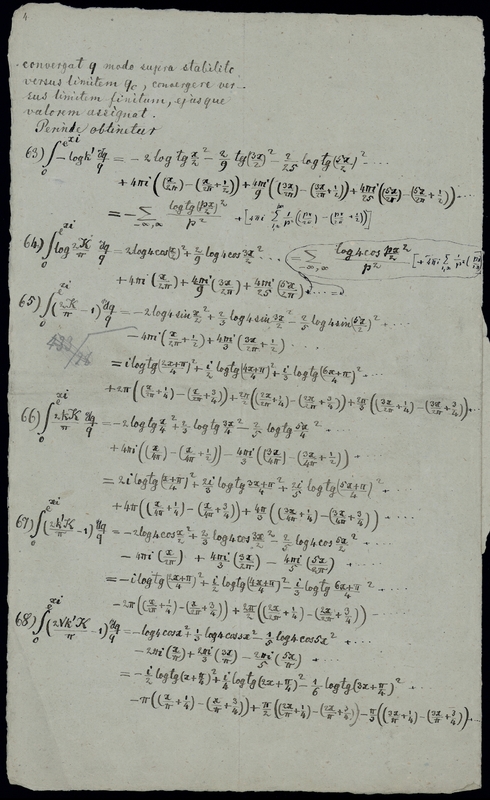 4
convergat q modo supra stabilito
versus limitem q₀, convergere ver-
sus limitem finitum, ejusque
valorem assignat.
Perinde obtinetur
63) ∫₀^{e^{xi}} -log k' dq/q = -2 log tg (x/2)² - 2/9 log tg (3x/2)² - 2/25 log tg (5x/2)² ...
+ 4πi ((x/2π) - (x/2π + 1/2)) + 4πi/9 ((3x/2π) - (3x/2π + 1/2)) + 4πi/25 ((5x/2π) - (5x/2π + 1/2)) ...
= -∑_{-∞,∞} log tg (px/2)² / p² + [4πi ∑ 1/p² ((px/2π) - (px/2π + 1/2))]
64) ∫₀^{e^{xi}} log 2K/π dq/q = 2 log 4 cos (x/2)² + 2/9 log 4 cos (3x/2)² ... = ∑_{-∞,∞} log 4 cos (px/2)² / p² [+ 4πi ∑ 1/p² (px/2π
+ 4πi (x/2π) + 4πi/9 (3x/2π) + 4πi/25 (5x/2π) + ...
65) ∫₀^{e^{xi}} (2K/π - 1) dq/q = -2 log 4 sin (x/2)² + 2/3 log 4 sin (3x/2)² - 2/5 log 4 sin (5x/2)² + ...
- 4πi (x/2π + 1/2) + 4πi/3 (3x/2π + 1/2) ...
= i log tg (2x+π/4)² + i/2 log tg (4x+π/4)² + i/3 log tg (6x+π/4)² + ...
+ 2π ((x/2π + 1/4) - (x/2π + 3/4)) + 2π/2 ((2x/2π + 1/4) - (2x/2π + 3/4)) + 2π/3 ((3x/2π + 1/4) - (3x/2π + 3/4)) + ...
66) ∫₀^{e^{xi}} 2kK/π dq/q = -2 log tg (x/4)² + 2/3 log tg (3x/4)² - 2/5 log tg (5x/4)² + ...
+ 4πi ((x/4π) - (x/4π + 1/2)) - 4πi/3 ((3x/4π) - (3x/4π + 1/2)) + ...
= 2i log tg (x+π/4)² + 2i/3 log tg (3x+π/4)² + 2i/5 log tg (5x+π/4)² + ...
+ 4π ((x/4π + 1/4) - (x/4π + 3/4)) + 4π/3 ((3x/4π + 1/4) - (3x/4π + 3/4)) + ...
67) ∫₀^{e^{xi}} (2k'K/π - 1) dq/q = -2 log 4 cos (x/2)² + 2/3 log 4 cos (3x/2)² - 2/5 log 4 cos (5x/2)² + ...
- 4πi (x/2π) + 4πi/3 (3x/2π) - 4πi/5 (5x/2π) + ...
= -i log tg (2x+π/4)² + i/2 log tg (4x+π/4)² - i/3 log tg (6x+π/4)² + ...
- 2π ((x/2π + 1/4) - (x/2π + 3/4)) + 2π/2 ((2x/2π + 1/4) - (2x/2π + 3/4)) ...
68) ∫₀^{e^{xi}} (2√k'K/π - 1) dq/q = -log 4 cos x² + 1/3 log 4 cos 3x² - 1/5 log 4 cos 5x² + ...
- 2πi (x/π) + 2πi/3 (3x/π) - 2πi/5 (5x/π) + ...
= -i/2 log tg (x + π/4)² + i/4 log tg (2x + π/4)² - i/6 log tg (3x + π/4)² + ...
- π ((x/π + 1/4) - (x/π + 3/4)) + π/2 ((2x/π + 1/4) - (2x/π + 3/4)) - π/3 ((3x/π + 1/4) - (3x/π + 3/4)) + ...